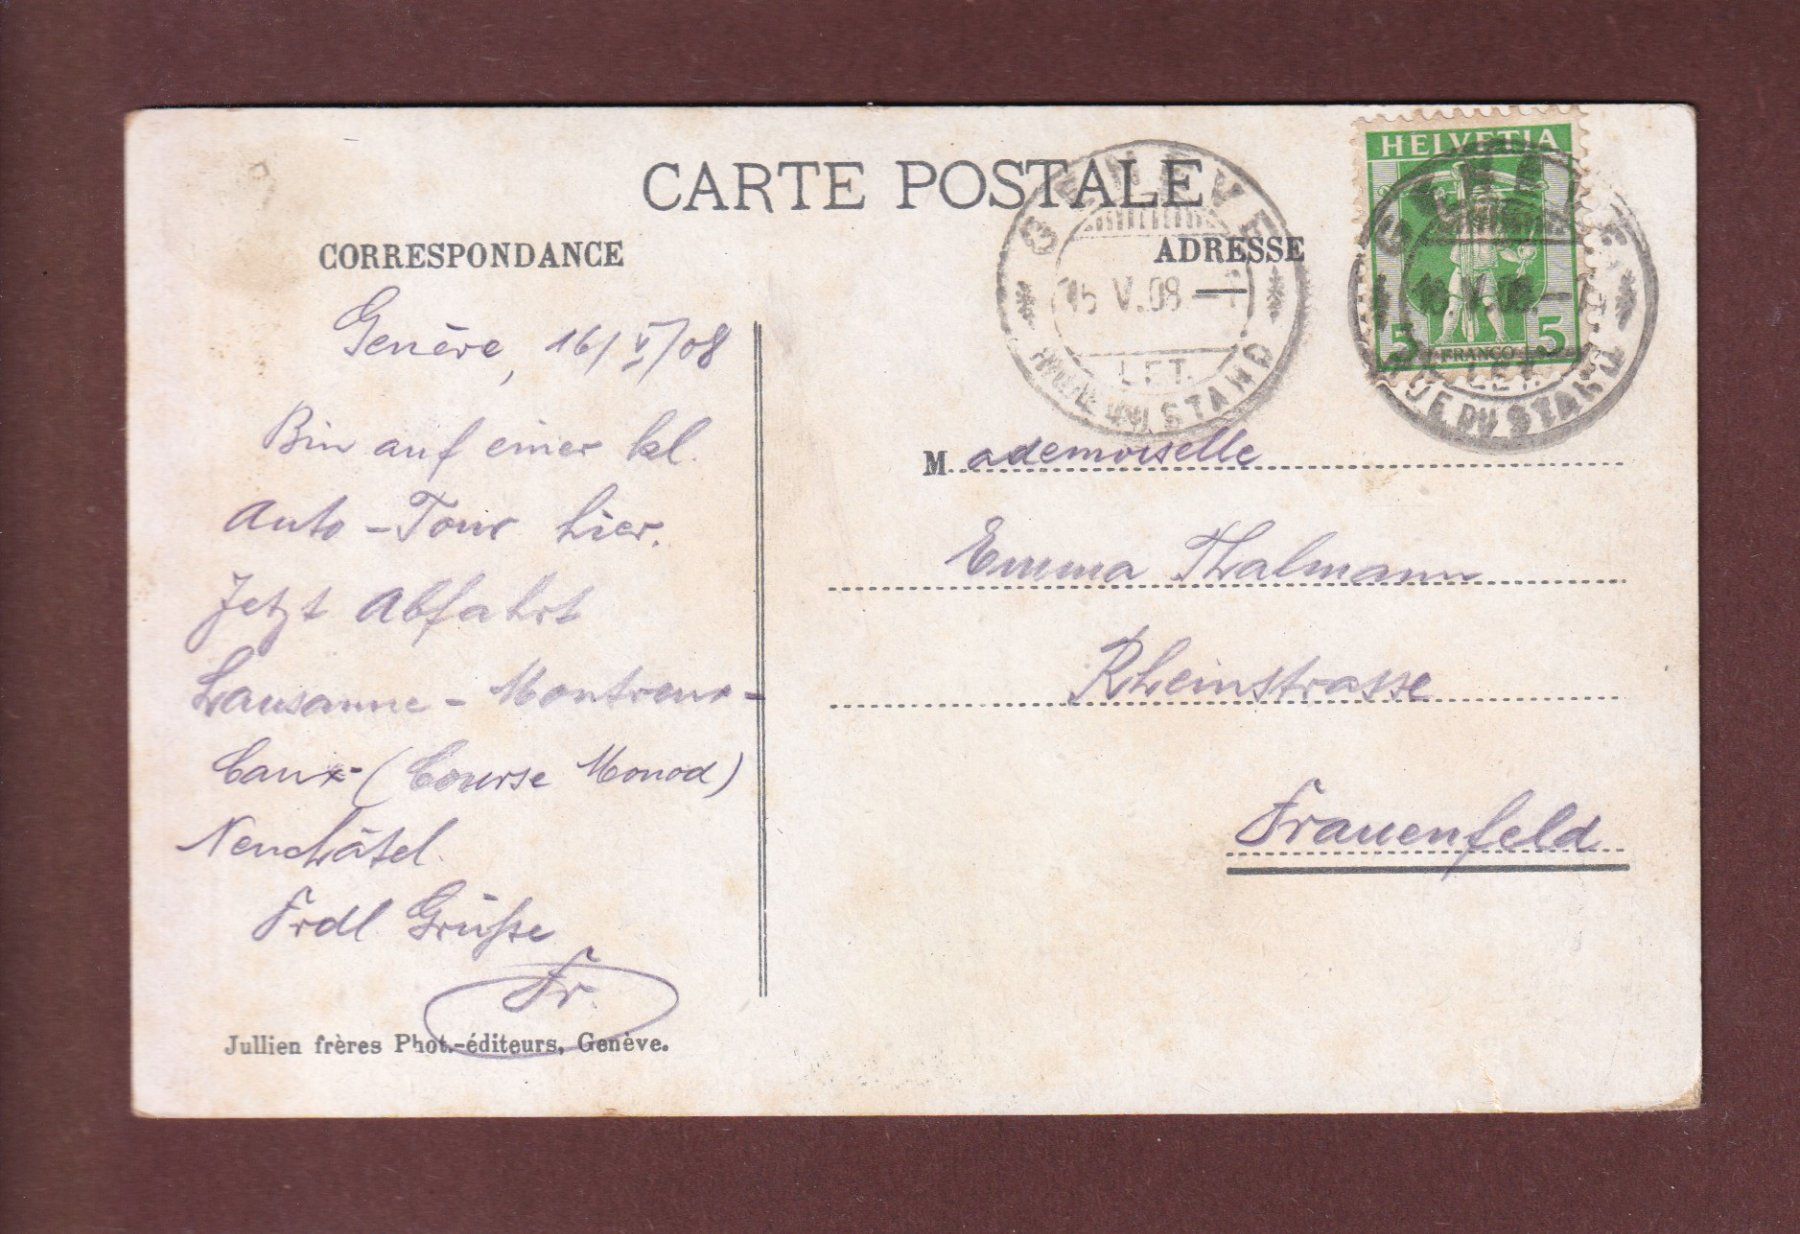 CARTE POSTALE
CORRESPONDANCE
ADRESSE
HELVETIA
5 FRANCO 5
GENÈVE
16 V.08
LET.
RUE DU STAND
GENÈVE
16.V.08.
LET.
RUE DU STAND
Genève, 16/V/08
Bin auf einer kl.
Auto-Tour hier.
Jetzt Abfahrt
Lausanne - Montreux -
Caux - (Course Monod)
Neuchâtel.
Frdl Grüße
Fr.
Jullien frères Phot.-éditeurs, Genève.
Mademoiselle
Emma Thalmann
Rheinstrasse
Frauenfeld